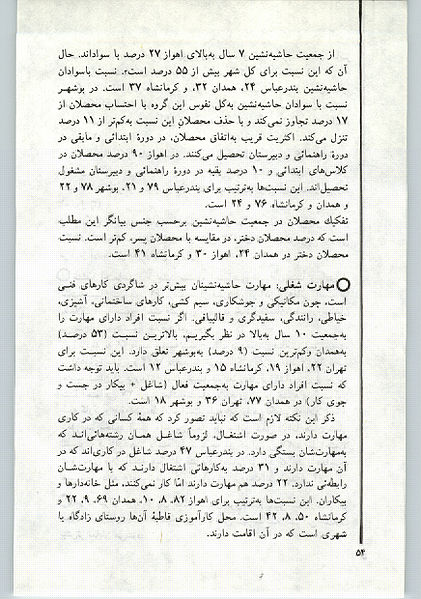 از جمعیت حاشیه‌نشین ۷ سال به‌بالای اهواز ۲۷ درصد با سواداند. حال
آن که این نسبت برای کل شهر بیش از ۵۵ درصد است. نسبت باسوادان
حاشیه‌نشین بندرعباس ۲۴، همدان ۳۲، و کرمانشاه ۳۷ است. در بوشهر
نسبت با سوادان حاشیه‌نشین به‌کل نفوس این گروه با احتساب محصلان از
۱۷ درصد تجاوز نمی‌کند و با حذف محصلان این نسبت به‌کم‌تر از ۱۱ درصد
تنزل می‌کند. اکثریت قریب به‌اتفاق محصلان، در دورهٔ ابتدائی و مابقی در
دورهٔ راهنمائی و دبیرستان تحصیل می‌کنند. در اهواز ۹۰ درصد محصلان در
کلاس‌های ابتدائی و ۱۰ درصد بقیه در دورهٔ راهنمائی و دبیرستان مشغول
تحصیل‌اند. این نسبت‌ها به‌ترتیب برای بندرعباس ۷۹ و ۲۱، بوشهر ۷۸ و ۲۲
و همدان و کرمانشاه ۷۶ و ۲۴ است.
تفکیک محصلان در جمعیت حاشیه‌نشین برحسب جنس بیانگر این مطلب
است که درصد محصلان دختر، در مقایسه با محصلان پسر، کم‌تر است. نسبت
محصلان دختر در همدان ۲۴، اهواز ۳۰ و کرمانشاه ۴۱ است.
مهارت شغلی: مهارت حاشیه‌نشینان بیش‌تر در شاگردی کارهای فنی
است، چون مکانیکی و جوشکاری، سیم کشی، کارهای ساختمانی، آشپزی،
خیاطی، رانندگی، سفیدگری و قالیبافی. اگر نسبت افراد دارای مهارت را
به‌جمعیت ۱۰ سال به‌بالا در نظر بگیریم، بالاترین نسبت (۵۳ درصد)
به‌همدان وکم‌ترین نسبت (۹ درصد) به‌بوشهر تعلق دارد. این نسبت برای
تهران ۲۲، اهواز ۱۹، کرمانشاه ۱۵ و بندرعباس ۱۲ است. باید توجه داشت
که نسبت افراد دارای مهارت به‌جمعیت فعال (شاغل + بیکار در جست و
جوی کار) در همدان ۷۷، تهران ۳۶ و بوشهر ۱۸ است.
ذکر این نکته لازم است که نباید تصور کرد که همهٔ کسانی که در کاری
مهارت دارند، در صورت اشتغال، لزوماً شاغل همان رشته‌هائی‌اند که
به‌مهارت‌شان بستگی دارد. در بندرعباس ۴۷ درصد شاغل در کاری‌اند که در
آن مهارت دارند و ۳۱ درصد به‌کارهائی اشتغال دارند که با مهارت‌شان
رابطه‌ئی ندارد. ۲۲ درصد هم مهارت دارند امّا کار نمی‌کنند، مثل خانه‌دارها و
بیکاران. این نسبت‌ها به‌ترتیب برای اهواز ۸۲، ۸، ۱۰، همدان ۶۹، ۹، ۲۲ و
کرمانشاه ۵۰، ۸، ۴۲ است. محل کارآموزی قاطبهٔ آن‌ها روستای زادگاه یا
شهری است که در آن اقامت دارند.
۵۴